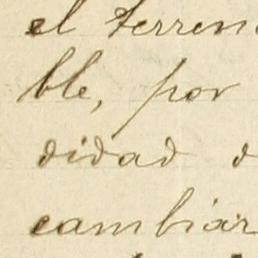 el terren
ble, por
didad d
cambiar